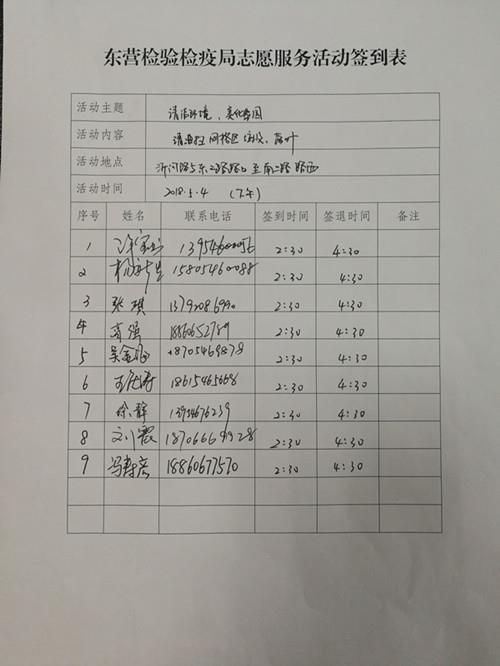 东营检验检疫局志愿服务活动签到表
活动主题 清洁环境、美化家园
活动内容 清理 网格区 垃圾、落叶
活动地点 沂河路与东二路路口至南二路 路西
活动时间 2018.5.4 (下午)
序号 姓名 联系电话 签到时间 签退时间 备注
1 2:30 4:30
2 15805460088 2:30 4:30
3 张琪 2:30 4:30
4 高强 18860652759 2:30 4:30
5 18705469878 2:30 4:30
6 18615465668 2:30 4:30
7 徐静 13954676239 2:30 4:30
8 刘霞 18706669928 2:30 4:30
9 冯春彦 18860677570 2:30 4:30